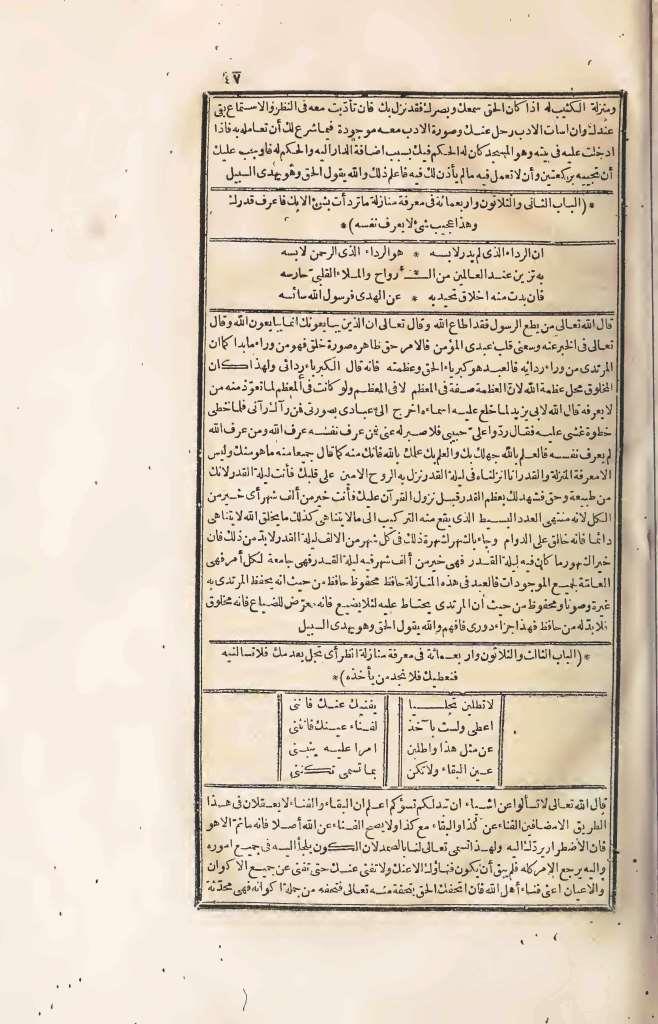 ٤٧
ومنزلة الكثيب له اذا كان الحق سمعك وبصرك فقد نزل بك فان تأدبت معه فى النظر والاستماع بقى
عندك وان اسأت الادب رحل عنك وصورة الادب معه موجودة فيما شرع لك أن تعامله به فاذا
ادخلت عليه فى بيته وهو المسجد كان له الحكم فيك بسبب اضافة الدار اليه والحكم له فاوجب عليك
أن تحييه بركعتين وأن لا تعمل فيه ما لم يأذن لك فيه فاعلم ذلك والله يقول الحق وهو يهدى السبيل
*(الباب الثانى والثلاثون واربعمائة فى معرفة منازلة ما ترددت بشئ الا بك فاعرف قدرك
وهذا عجيب شئ لا يعرف نفسه)*
ان الرداء الذى لم يدر لابسه * هو الرداء الذى الرحمن لابسه
به تزين عند العالمين من الـ * أرواح والملاء القلبى حارسه
فان بدت منه اخلاق تحيد به * عن الهدى فرسول الله سائسه
قال الله تعالى من يطع الرسول فقد اطاع الله وقال تعالى ان الذين يبايعونك انما يبايعون الله وقال
تعالى فى الخبر عنه وسعنى قلب عبدى المؤمن فالامر حق ظاهره صورة خلق فهو من وراء ما بدا كما ان
المرتدى من وراء ردائه فالعبد هو كبرياء الحق وعظمته فانه قال الكبرياء ردائى ولهذا كان
المخلوق محل عظمة الله لان العظمة صفة فى المعظم لا فى المعظم ولو كانت فى المعظم لما تعوذ منه من
لا يعرفه قال الله لابى يزيد لما خلع عليه اسماءه اخرج الى عبادى بصورتى فمن رآك رآنى فلما خطى
خطوة غشى عليه فقال ردوا على حبيبى فلا صبر له عنى فمن عرف نفسه عرف الله ومن عرف الله
لم يعرف نفسه فالعلم بالله جهلك بك والعلم بك علمك بالله فانك منه كما قال جميعا منه ما هو منك وليس
الا معرفة المنزلة والقدر انا انزلناه فى ليلة القدر نزل به الروح الامين على قلبك فأنت ليلة القدر لانك
من طبيعة وحق فشهد لك بعظم القدر قبل نزول القرآن عليك فأنت خير من ألف شهر أى خير من
الكل لانه منتهى العدد البسيط الذى يقع منه التركيب الى ما لا يتناهى كذلك ما يخلق الله لا يتناهى
دائما فانه خالق على الدوام وجاء بالشهر لشهرة ذلك فى كل شهر من الالف ليلة القدر لابد من ذلك فان
خير الشهور ما كان فيه ليلة القدر فهى خير من ألف شهر فيه ليلة القدر فهى جامعة لكل أمر فهى
العامّة لجميع الموجودات فالعبد فى هذه المنازلة حافظ محفوظ حافظ من حيث انه يحفظ المرتدى به
غيرة وصونا ومحفوظ من حيث أن المرتدى يحتاط عليه لئلا يضيع فانه معرّض للضياع فانه مخلوق
فلا بدّ له من حافظ فهذا جزاء دورى فافهم والله يقول الحق وهو يهدى السبيل
*(الباب الثالث والثلاثون واربعمائة فى معرفة منازلة انظر أى تجل يعدمك فلا تسألنيه
فنعطيك فلا نجد من يأخذه)*
لا تطلبن تجليا يفنيك عنك فاننى
اعطى ولست بآخذ لفناء عينك فاننى
عن مثل هذا واطلبن امرا عليه ينبنى
عين البقاء ولا تكن بما تسمى تكتنى
قال الله تعالى لا تسألوا عن اشياء ان تبد لكم تسؤكم اعلم ان البقاء والفناء لا يعقلان فى هذا
الطريق الا مضافين الفناء عن كذا والبقاء مع كذا ولا يصح الفناء عن الله أصلا فانه ما ثم الا هو
فان الاضطرار يردك اليه ولهذا تسمى تعالى لنا بالصمد لان الكون يلجأ اليه فى جميع اموره
واليه يرجع الامر كله فلم يبق أن يكون فناؤك الا عنك ولا تفنى عنك حتى تفنى عن جميع الاكوان
والاعيان اعنى فناء أهل الله فان اتحفك الحق بتحفة منه تعالى فتحفه من جملة اكوانه فهى محدثة